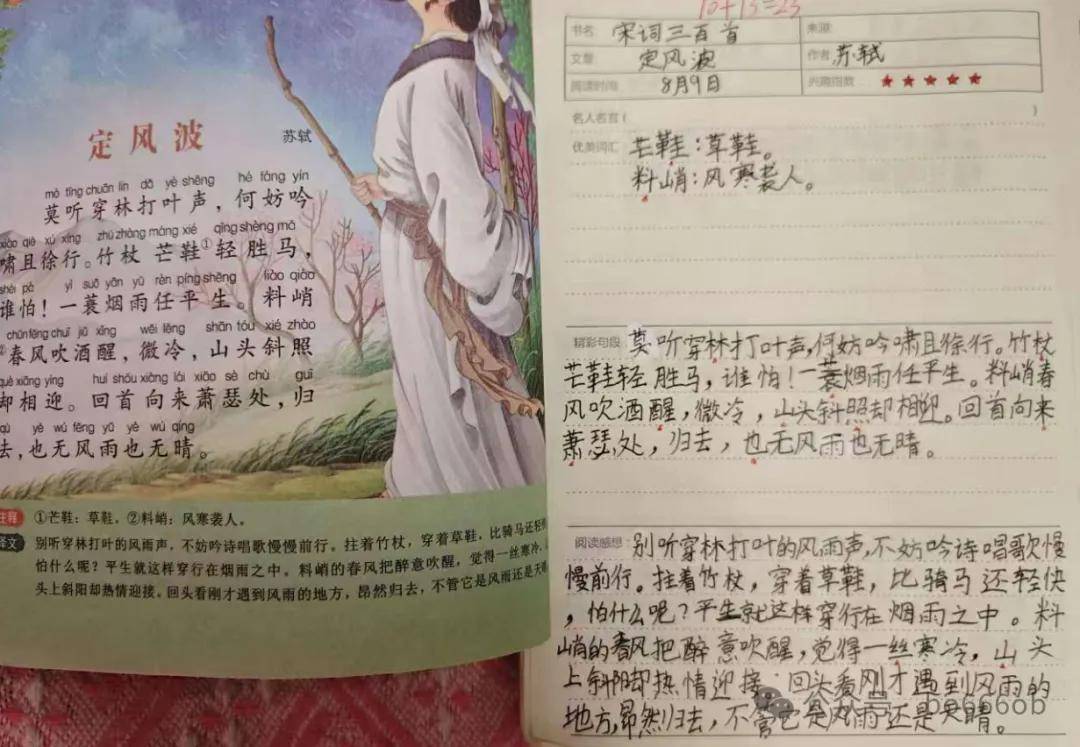 定风波
苏轼
mò tīng chuān lín dǎ yè shēng hé fáng yín
莫听穿林打叶声，何妨吟
xiào qiě xú xíng zhú zhàng máng xié qīng shèng mǎ
啸且徐行。竹杖 芒鞋①轻胜马，
shéi pà yì suō yān yǔ rèn píng shēng liào qiào
谁怕！一蓑烟雨任平生。料峭
chūn fēng chuī jiǔ xǐng wēi lěng shān tóu xié zhào
②春风吹酒醒，微冷，山头斜照
què xiāng yíng huí shǒu xiàng lái xiāo sè chù guī
却相迎。回首向来萧瑟处，归
qù yě wú fēng yǔ yě wú qíng
去，也无风雨也无晴。
注释 ①芒鞋：草鞋。②料峭：风寒袭人。
译文 别听穿林打叶的风雨声，不妨吟诗唱歌慢慢前行。拄着竹杖，穿着草鞋，比骑马还轻
怕什么呢？平生就这样穿行在烟雨之中。料峭的春风把醉意吹醒，觉得一丝寒冷，
头上斜阳却热情迎接。回头看刚才遇到风雨的地方，昂然归去，不管它是风雨还是天晴
10+13=23
书名 宋词三百首 来源
文章 定风波 作者 苏轼
阅读时间 8月9日 兴趣指数 ★★★★★
名人名言( )
优美词汇 芒鞋：草鞋。
料峭：风寒袭人。
精彩句段 莫听穿林打叶声，何妨吟啸且徐行。竹杖
芒鞋轻胜马，谁怕！一蓑烟雨任平生。料峭春
风吹酒醒，微冷，山头斜照却相迎。回首向来
萧瑟处，归去，也无风雨也无晴。
阅读感想 别听穿林打叶的风雨声，不妨吟诗唱歌慢
慢前行。拄着竹杖，穿着草鞋，比骑马还轻快
，怕什么呢？平生就这样穿行在烟雨之中。料
峭的春风把醉意吹醒，觉得一丝寒冷，山头
上斜阳却热情迎接。回头看刚才遇到风雨的
地方，昂然归去，不管它是风雨还是天晴。